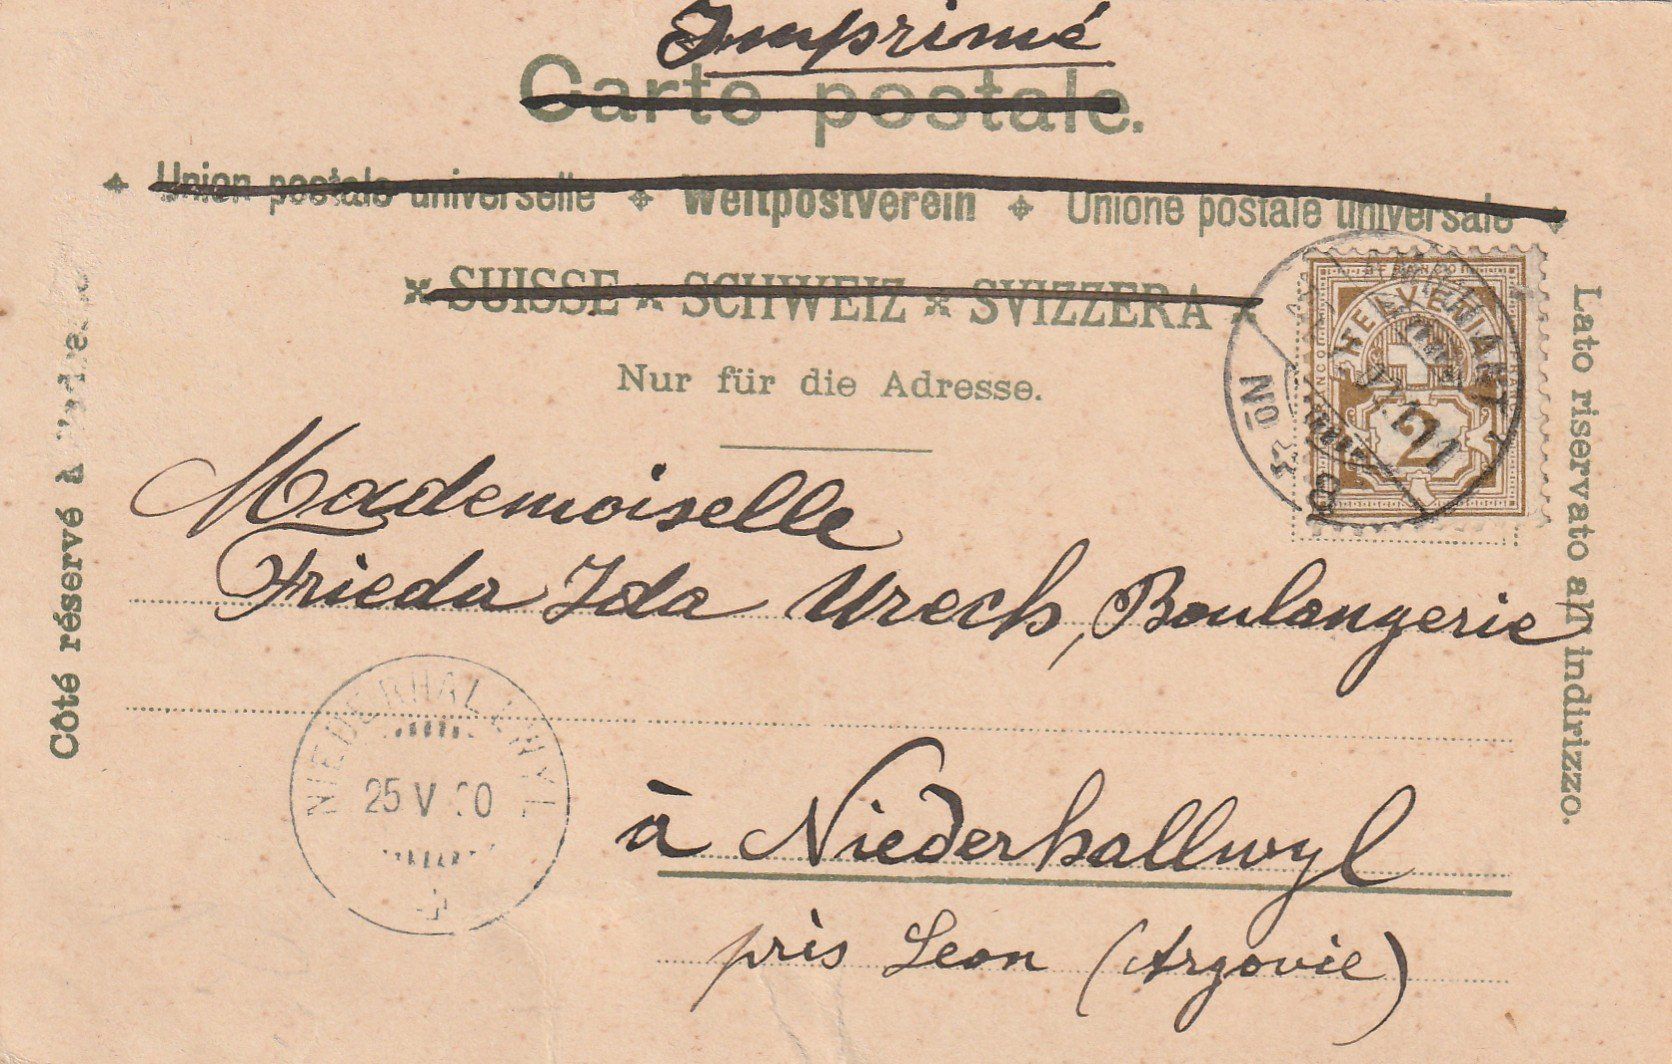 Imprimé
Carte postale.
Union postale universelle Weltpostverein Unione postale universale
SUISSE SCHWEIZ SVIZZERA
Nur für die Adresse.
Côté réservé à
Lato riservato all' indirizzo.
HELVETIA
2
No
Mademoiselle
Frieda Ida Urech, Boulangerie
NIEDERHALLWYL
25 V 00
à Niederhallwyl
près Leon (Argovie)